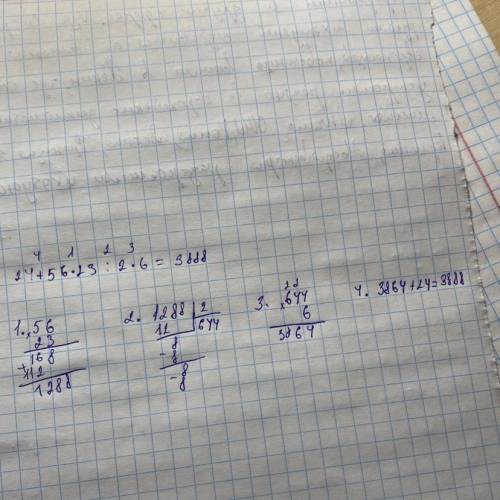 4 1 2 3
24+56·23:2·6=3888
1. ×56
23
168
+112
1288
2. 1288 2
11 644
8
-8
8
-8
3. 2 2
×644
6
3864
4. 3864+24=3888